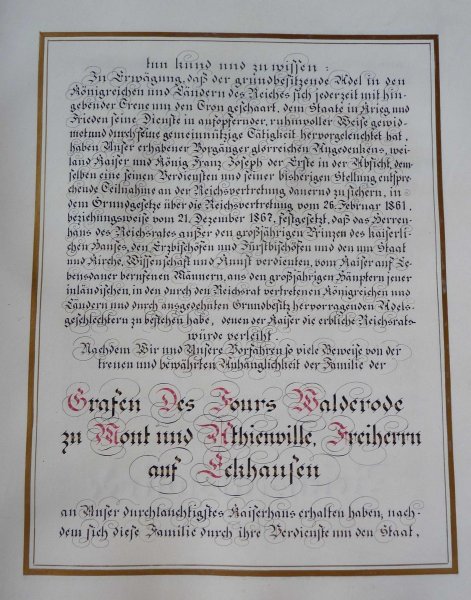 tun kund und zu wissen:
In Erwägung, daß der grundbesitzende Adel in den
Königreichen und Ländern des Reiches sich jederzeit mit hin-
gebender Treue um den Tron geschaart, dem Staate in Krieg und
Frieden seine Dienste in aufopfernder, ruhmvoller Weise gewid-
met und durch seine gemeinnützige Tätigkeit hervorgeleuchtet hat,
haben Unser erhabener Vorgänger glorreichen Angedenkens, wei-
land Kaiser und König Franz Joseph der Erste in der Absicht, dem-
selben eine seinen Verdiensten und seiner bisherigen Stellung entspre-
chende Teilnahme an der Reichsvertretung dauernd zu sichern, in
dem Grundgesetze über die Reichsvertretung vom 26. Februar 1861,
beziehungsweise vom 21. Dezember 1867, festgesetzt, daß das Herren-
haus des Reichsrates außer den großjährigen Prinzen des kaiserli-
chen Hauses, den Erzbischöfen und Fürstbischöfen und den um Staat
und Kirche, Wissenschaft und Kunst verdienten, vom Kaiser auf Le-
bensdauer berufenen Männern, aus den großjährigen Häuptern jener
inländischen, in den durch den Reichsrat vertretenen Königreichen und
Ländern und durch ausgedehnten Grundbesitz hervorragenden Adels-
geschlechtern zu bestehen habe, denen der Kaiser die erbliche Reichsrats-
würde verleiht.
Nachdem Wir und Unsere Vorfahren so viele Beweise von der
treuen und bewährten Anhänglichkeit der Familie der
Grafen Des Fours Walderode
zu Mont und Athienville, Freiherrn
auf Eckhausen
an Unser durchlauchtigstes Kaiserhaus erhalten haben, nach-
dem sich diese Familie durch ihre Verdienste um den Staat,